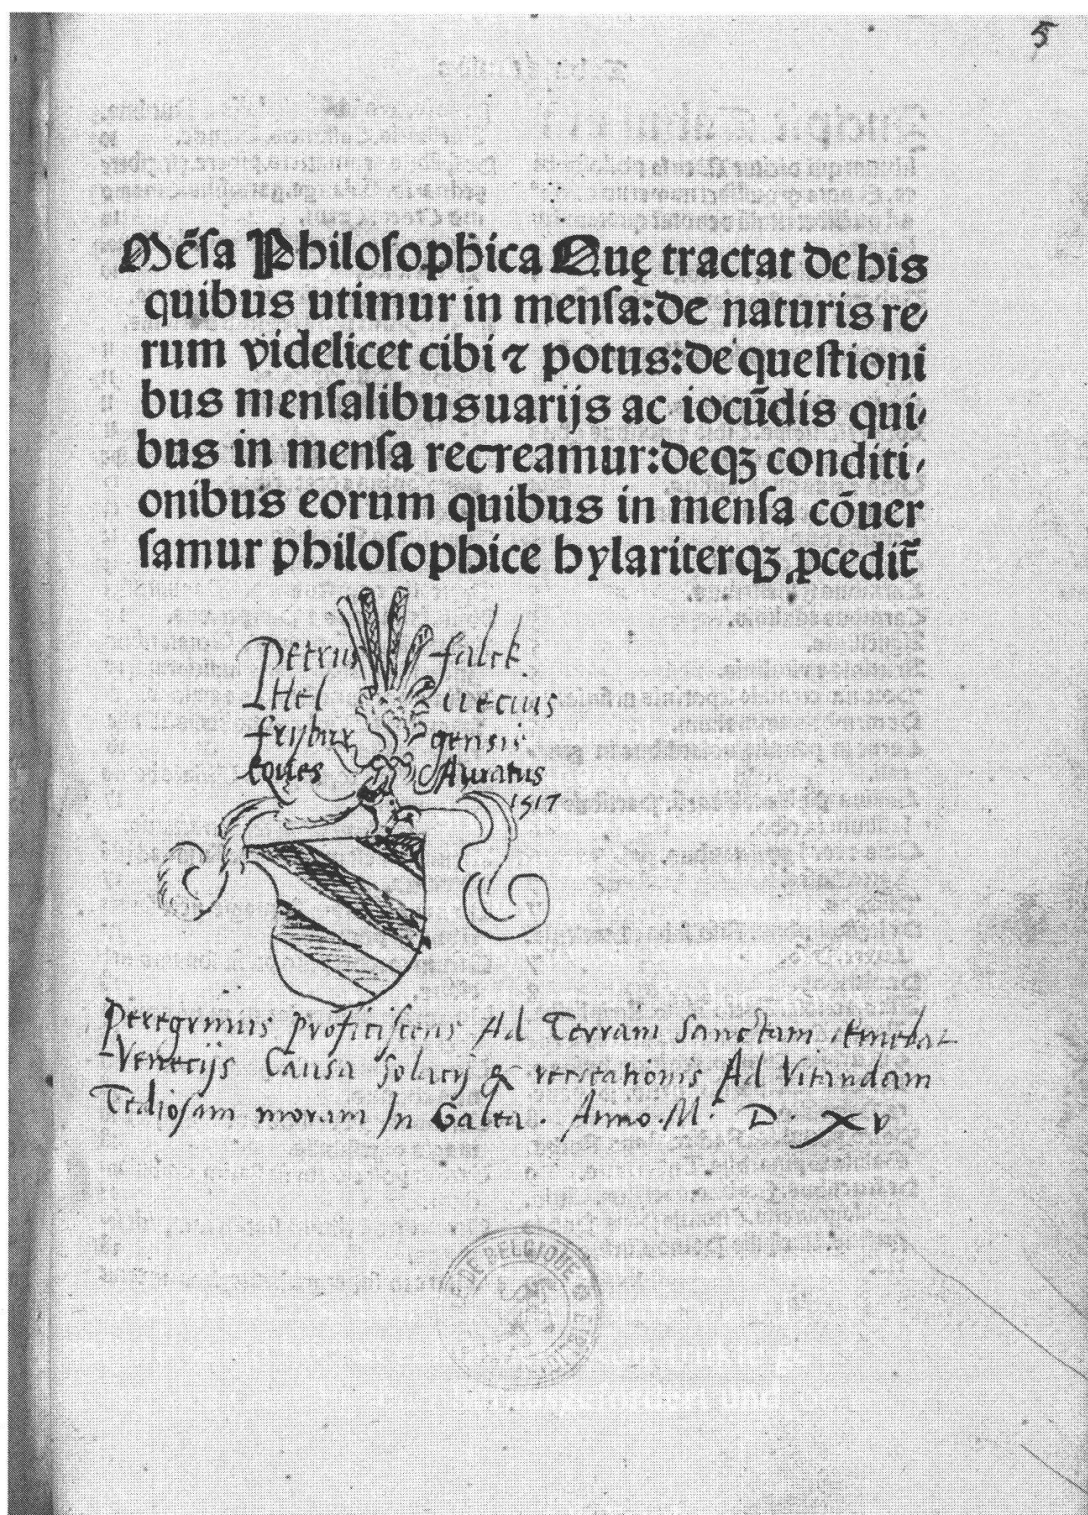 5
Mēsa Philosophica Quę tractat de his
quibus utimur in mensa: de naturis re/
rum videlicet cibi ⁊ potus: de questioni
bus mensalibus uarijs ac iocūdis qui/
bus in mensa recreamur: deqꝫ conditi/
onibus eorum quibus in mensa cōuer
samur philosophice hylariterqꝫ ꝓcedit̄
Petrus falck
Helvecius
fryburgensis
Eques Auratus
1517
Peregrinus proficiscens Ad Terram sanctam emebat
Venecijs Causa solacij & recreationis Ad Vitandam
Tediosam moram In Galea. Anno. M. D. XV
DE BELGIQUE